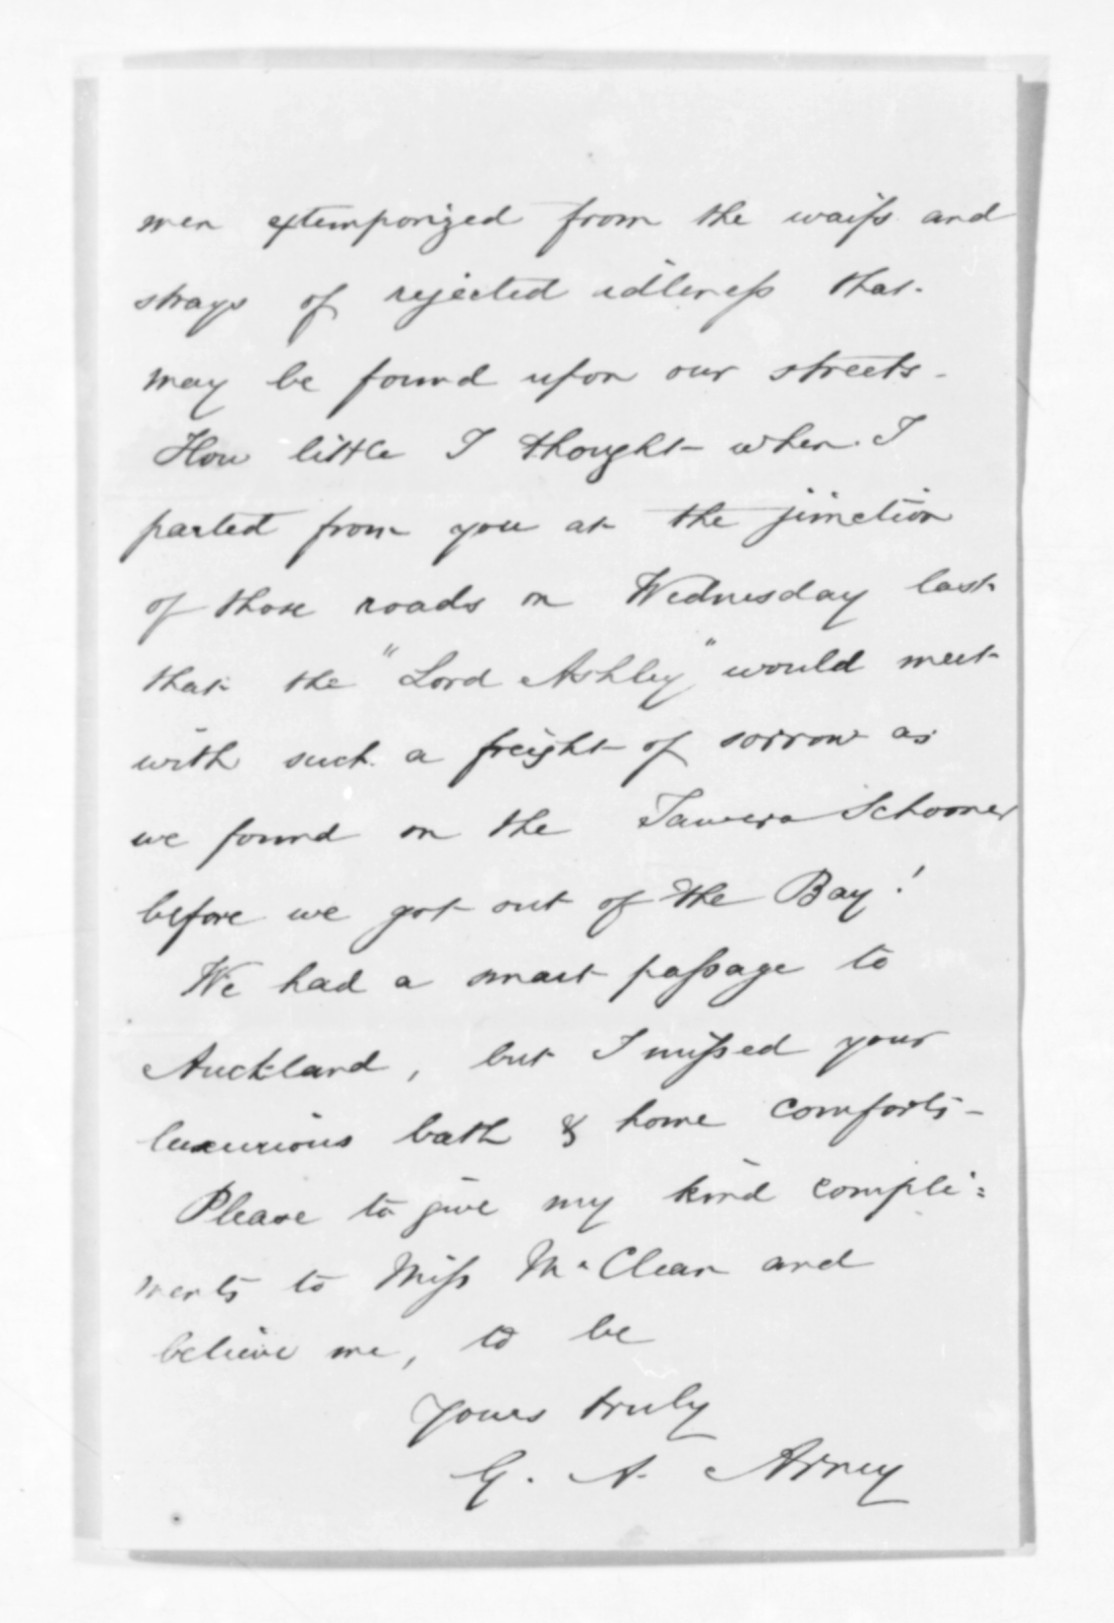 men extemporized from the waifs and
strays of rejected idleness that
may be found upon our streets -
How little I thought when I
parted from you at the junction
of those roads on Wednesday last
that the "Lord Ashley" would meet
with such a freight of sorrow as
we found on the Tawera Schooner
before we got out of the Bay!
We had a smart passage to
Auckland, but I missed your
luxurious bath & home comforts -
Please to give my kind compli=
ments to Miss McClean and
believe me, to be
Yours truly
G. A. Arney